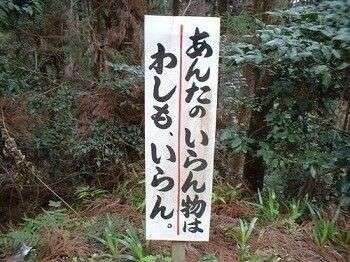 あんたのいらん物は
わしも、いらん。